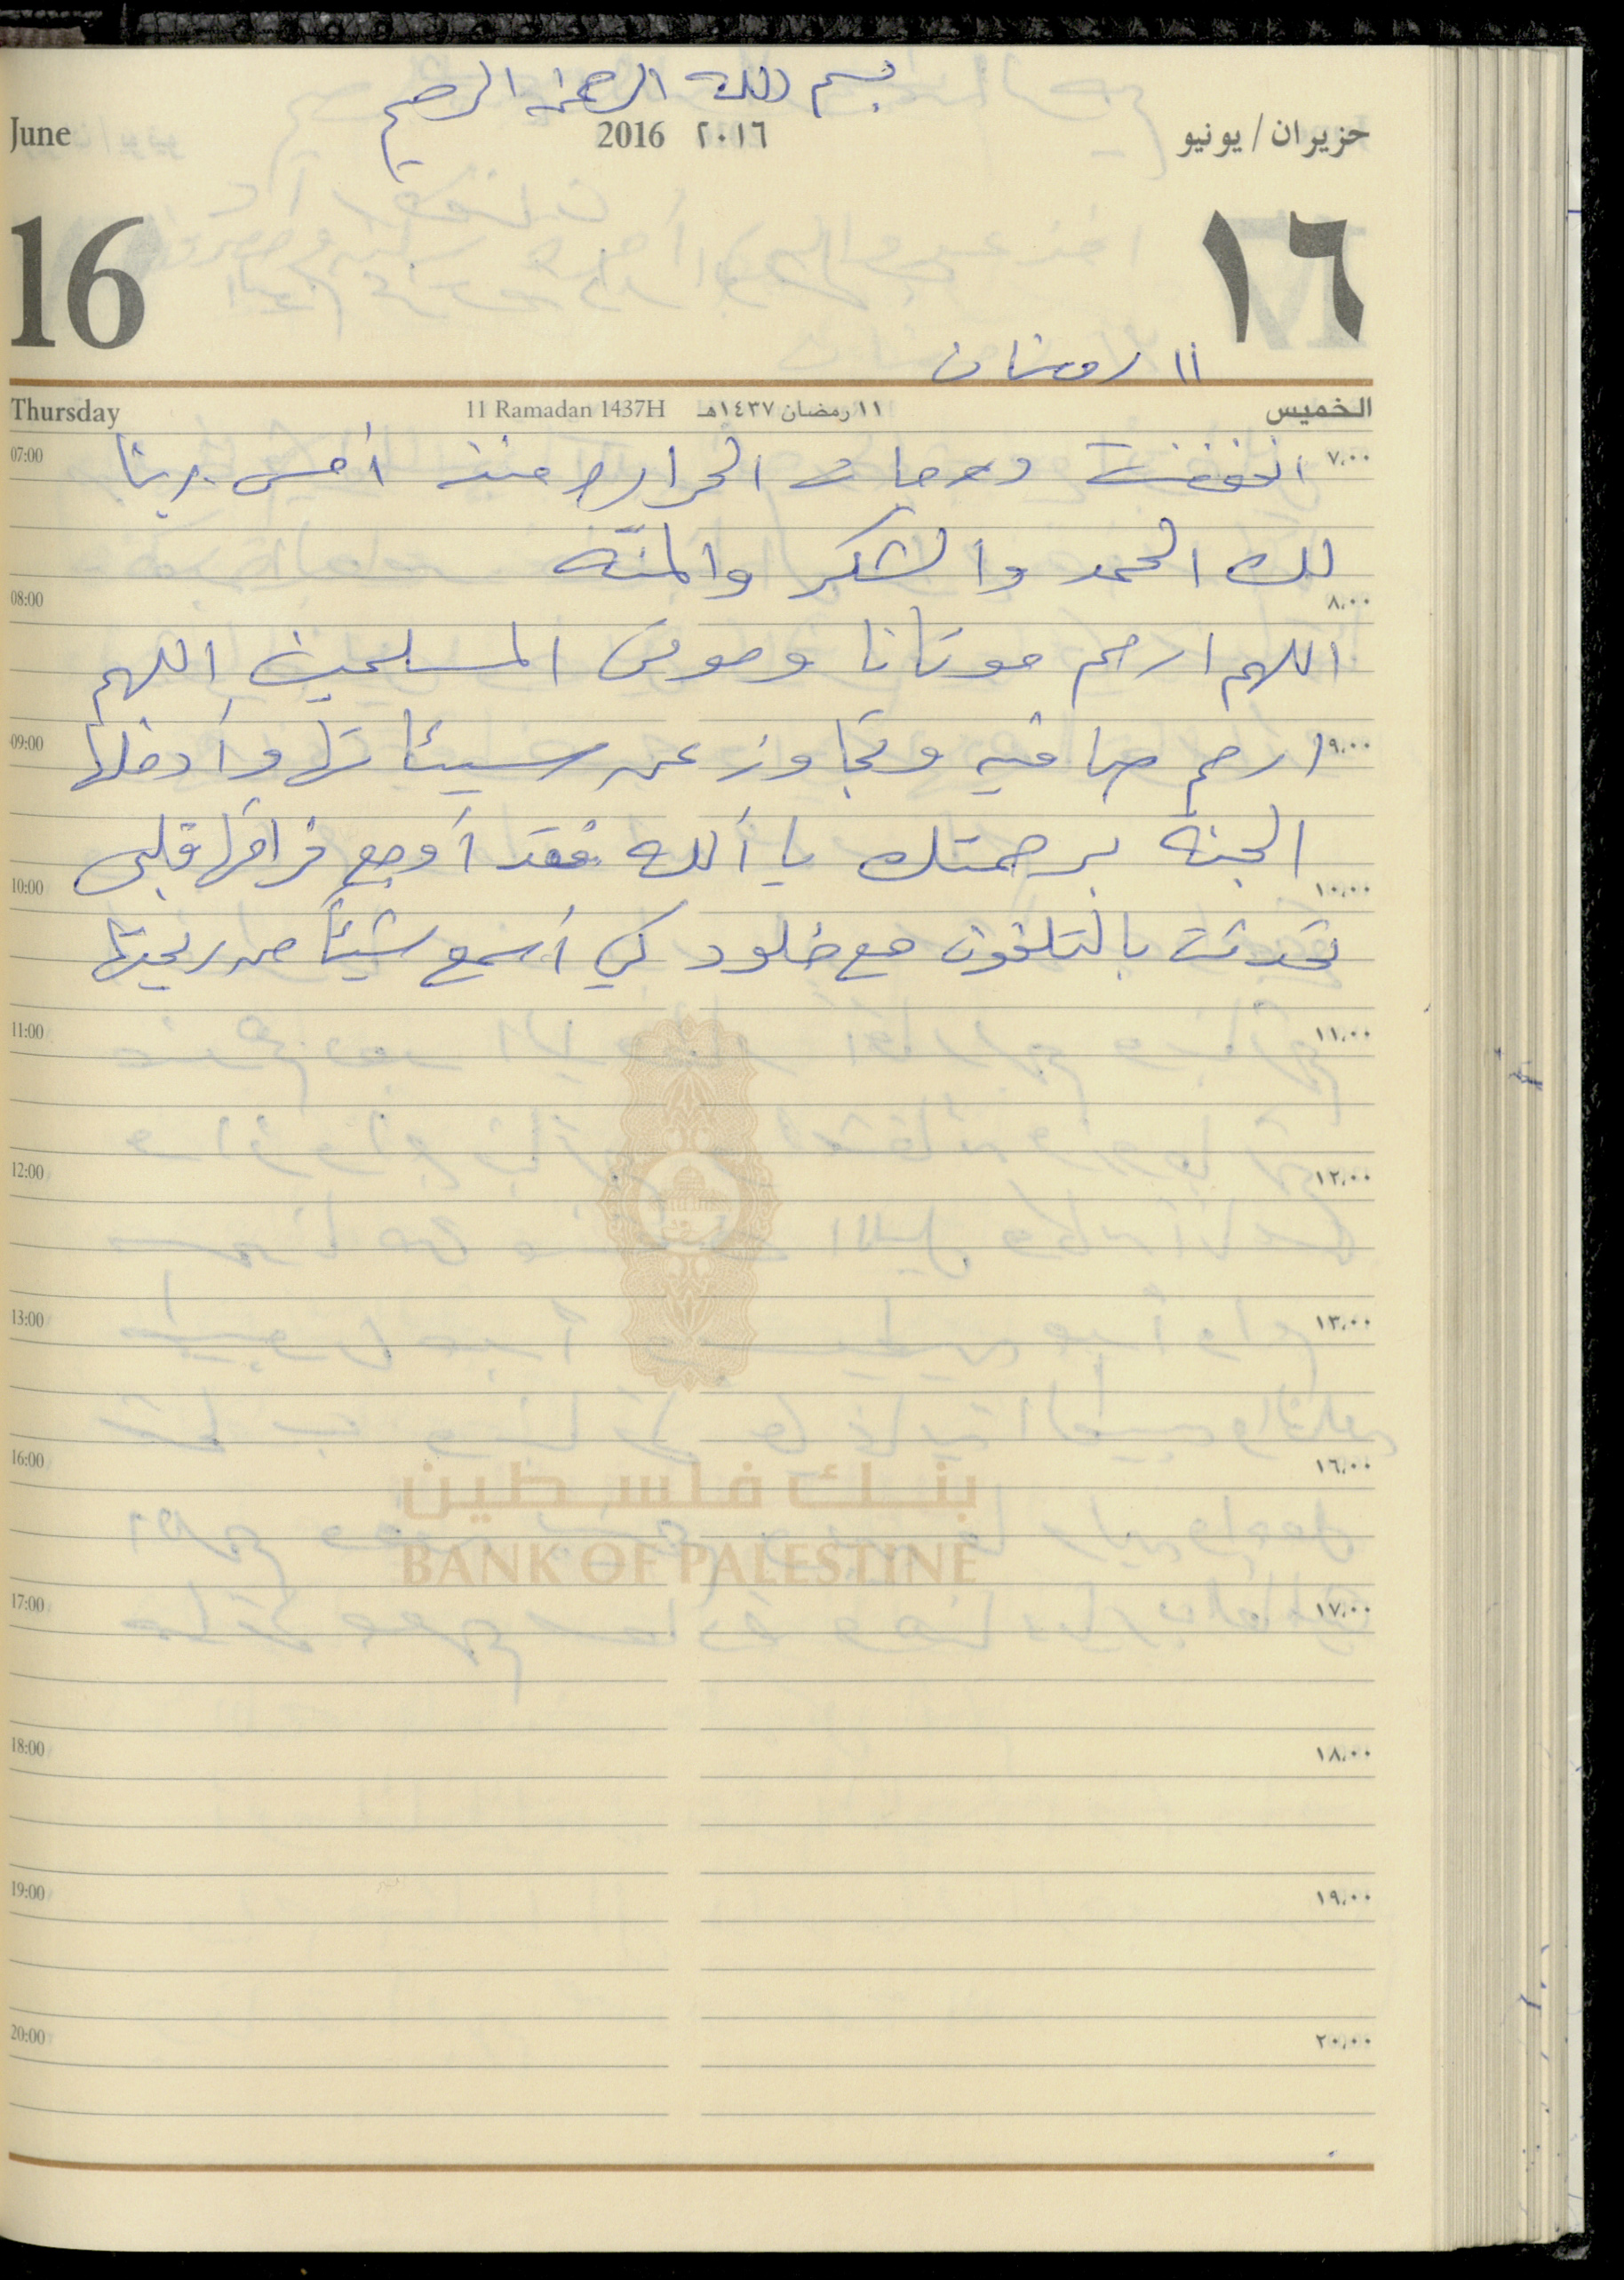 بسم الله الرحمن الرحيم
June 2016 ٢٠١٦ حزيران / يونيو
16 ١٦
١١ رمضان
Thursday 11 Ramadan 1437H ١١ رمضان ١٤٣٧هـ الخميس
07:00 ٧،٠٠
انخفضت درجات الحرارة منذ أمس ربنا
لك الحمد والشكر والمنّه
08:00 ٨،٠٠
اللهم ارحم موتانا وموتى المسلمين اللهم
09:00 ٩،٠٠
ارحم صافيه وتجاوز عن سيئاتها وأدخلها
الجنة برحمتك يا ألله فقد أوجع فراقها قلبي
10:00 ١٠،٠٠
تحدثت بالتلفون مع خلود كي أسمع شيئاً من ريحتها
11:00 ١١،٠٠
12:00 ١٢،٠٠
13:00 ١٣،٠٠
16:00 ١٦،٠٠
بنك فلسطين
BANK OF PALESTINE
17:00 ١٧،٠٠
18:00 ١٨،٠٠
19:00 ١٩،٠٠
20:00 ٢٠،٠٠